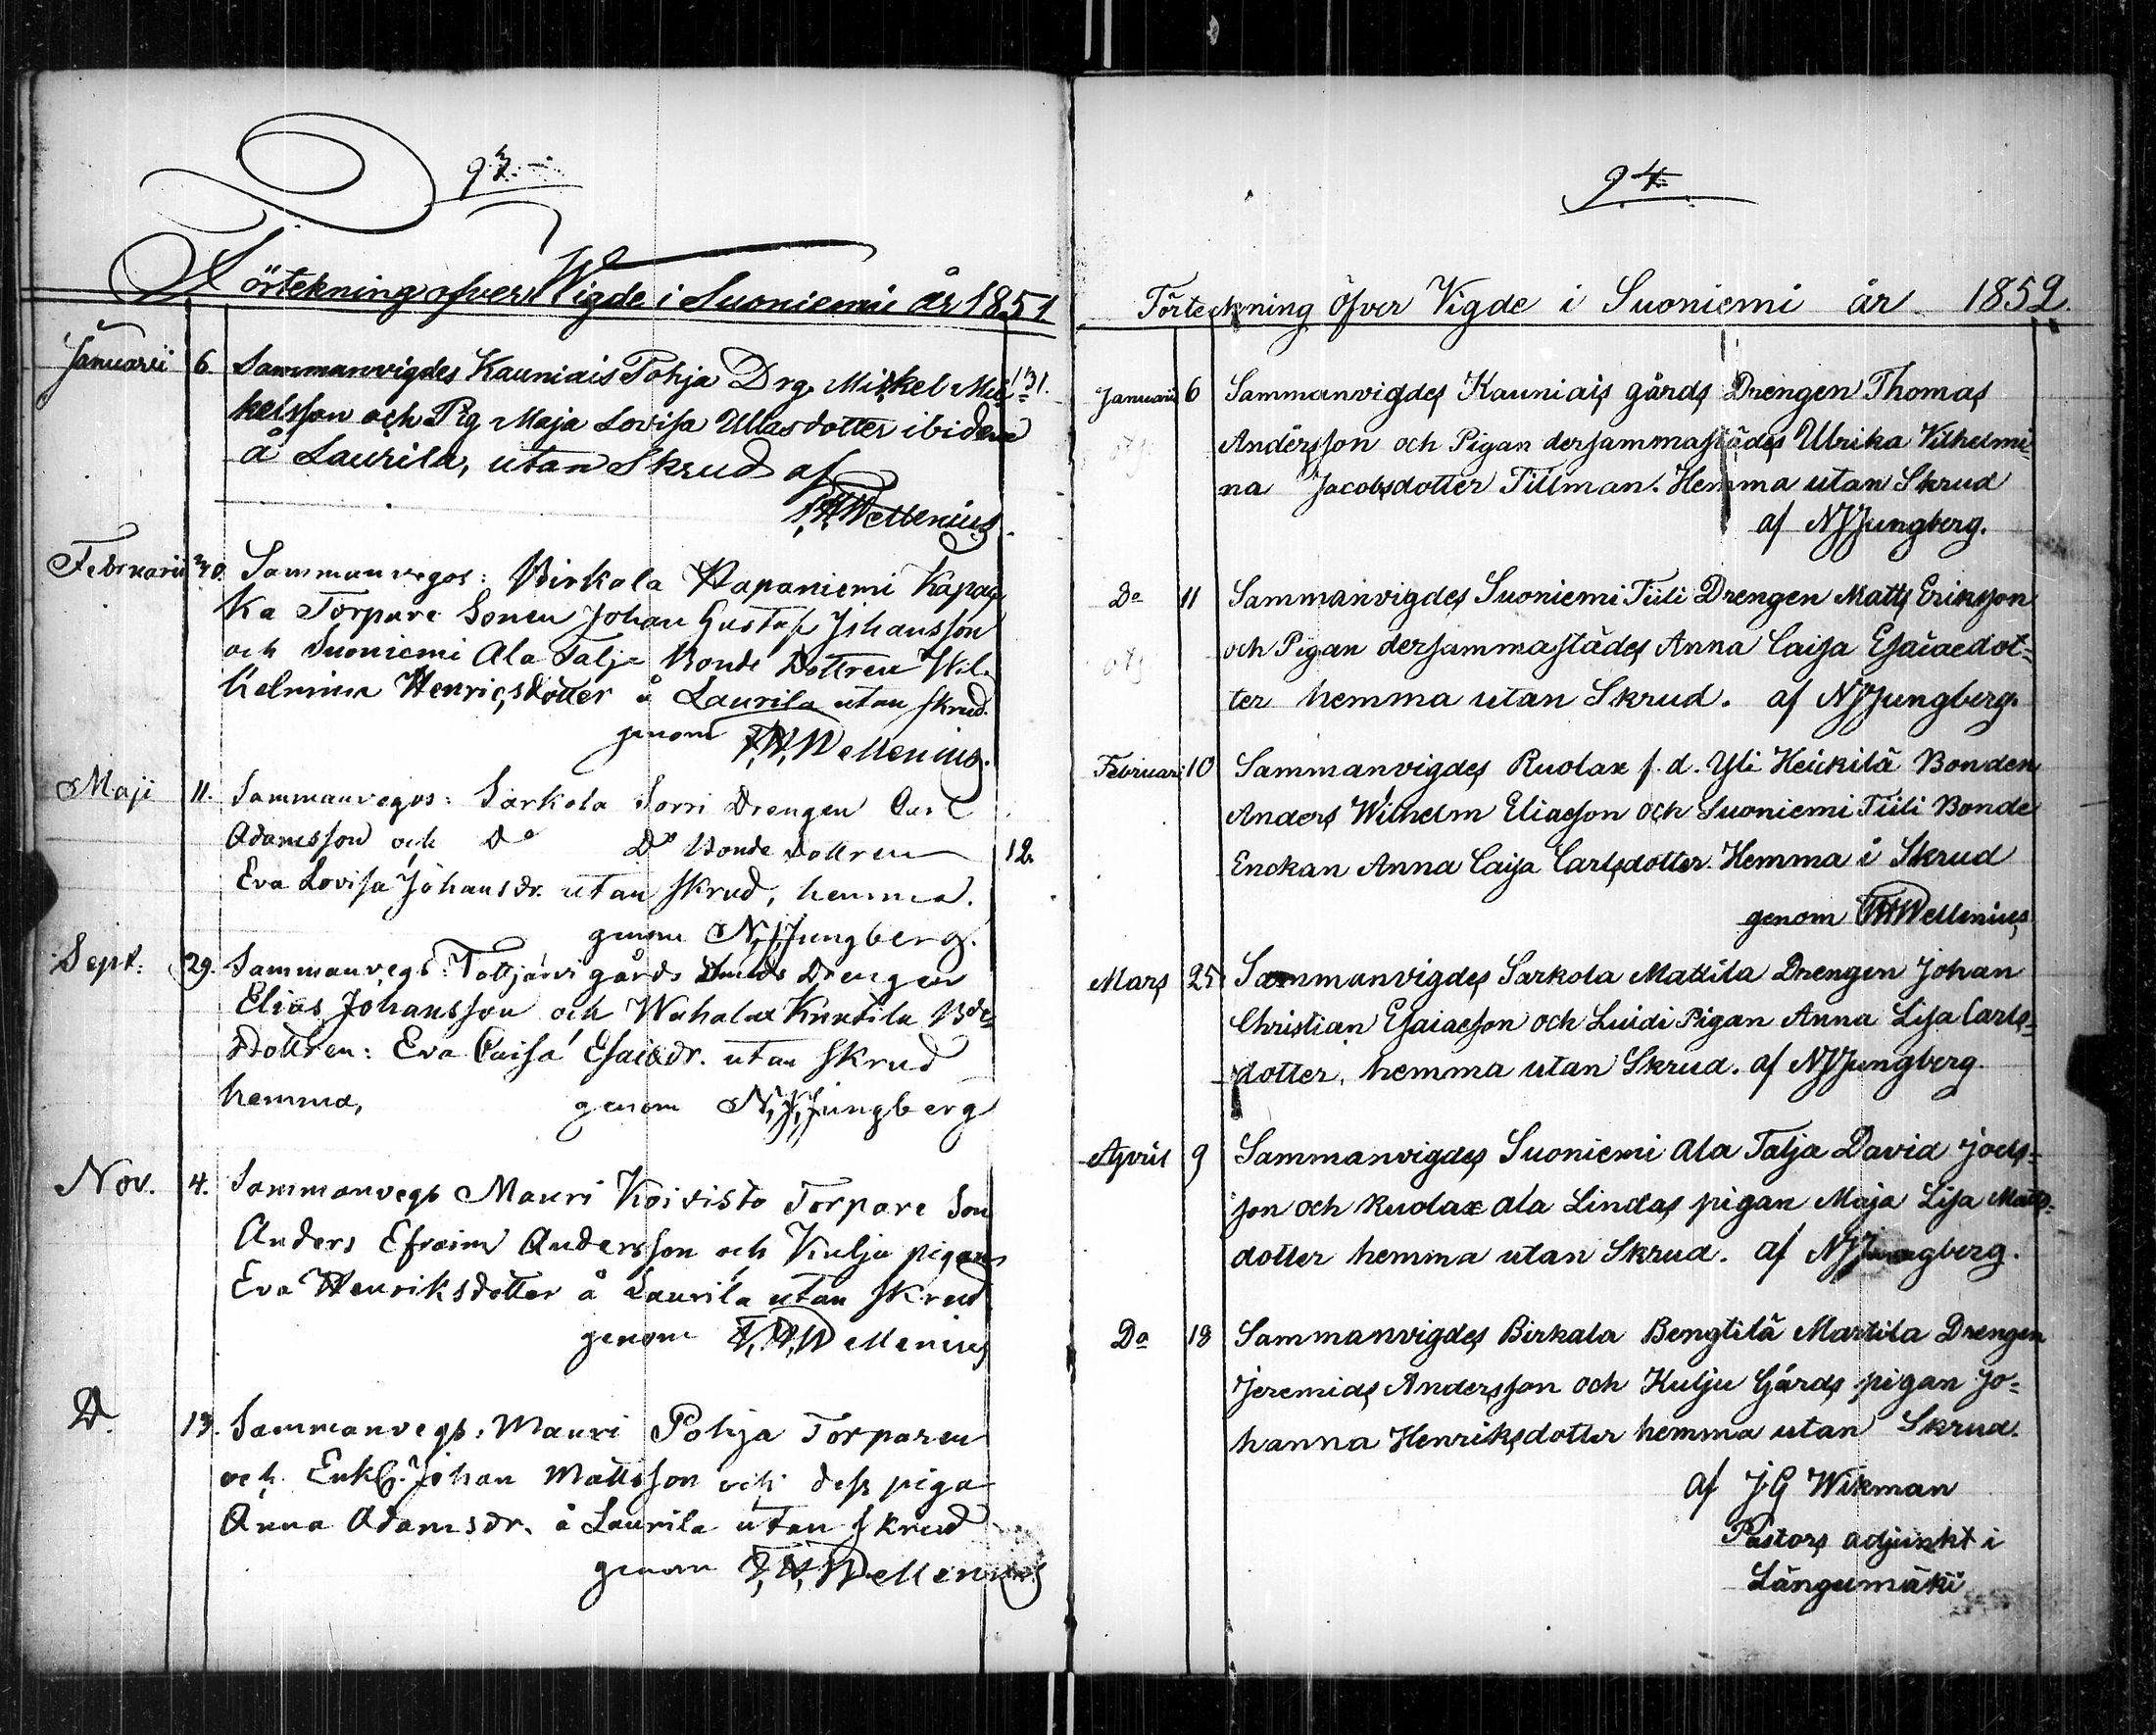 93.
Förtekning öfver Vigde i Suoniemi år 1851
Januarii 6. Sammanvigdes Kauniais Pohja Drg. Mickel Mic= 131.
kelsson och Pig. Maja Lovisa Ullasdotter ibidem
å Laurila, utan Skrud af
F,W,Wellenius
Februarii Sammanvegos: Birkala Haapaniemi
ka Torpare Sonen Johan Gustaf Johansson
och Suoniemi Ala Talja Bonde Dottren Wil-
helmina Henricsdotter å Laurila utan skrud.
genom F,W,Wellenius.
Maji 11. Sammanvegos: Sarkola Sorri Drengen Carl
Adamsson och Do Do Bonde Dottren 12.
Eva Lovisa Johansdr. utan skrud, hemma.
genom N,J,Jungberg.
Sept. 29. Sammanvegs: Tottjärvi gårds Drengen
Elias Johansson och Wahalax Knutila Bde
Dottren: Eva Caisa Esaiædr. utan skrud
hemma, genom N,J,Jungberg
Nov. 4. Sammanvegs Mauri Koivisto Torpare Son
Anders Efraim Andersson och Kulju pigan
Eva Henriksdotter å Laurila utan skrud
genom F,W,Wellenius
D. 13. Sammanvegs: Mauri Pohja Torparen
och Enkl. Johan Mattsson och dess piga
Anna Adamsdr. å Laurila utan skrud
genom F,W,Wellenius
94.
Förteckning Öfver Vigde i Suoniemi år 1852.
Januarii 6 Sammanvigdes Kauniais gårds Drengen Thomas
Andersson och Pigan dersammastädes Ulrika Vilhelmi-
na Jacobsdotter Tillman. Hemma utan Skrud
af NJJungberg.
Do 11 Sammanvigdes Suoniemi Tiili Drengen Matts Eriksson
och Pigan dersammastädes Anna Caisa Esaiaedot=
ter hemma utan Skrud. af NJJungberg.
Februari 10 Sammanvigdes Ruolax f.d. Yli Heickilä Bonden
Anders Wilhelm Eliaeson och Suoniemi Tiili Bonde
Enckan Anna Caisa Carlsdotter. Hemma i Skrud
genom FWWellenius
Mars 25 Sammanvigdes Sarkola Mattila Drengen Johan
Christian Esaiaeson och Luidi Pigan Anna Lisa Carls=
dotter, hemma utan Skrud. af NJJungberg.
April 9 Sammanvigdes Suoniemi Ala Talja David Joels=
son och Ruolax ala Lindas pigan Maja Lisa Matts-
dotter hemma utan Skrud. af NJJungberg.
Do 18 Sammanvigdes Birkala Bengtilä Martila Drengen
Jeremias Andersson och Kulju Gårds pigan Jo=
hanna Henriksdotter hemma utan Skrud.
af J.G Wikman
Pastors adjunkt i
Längumäki